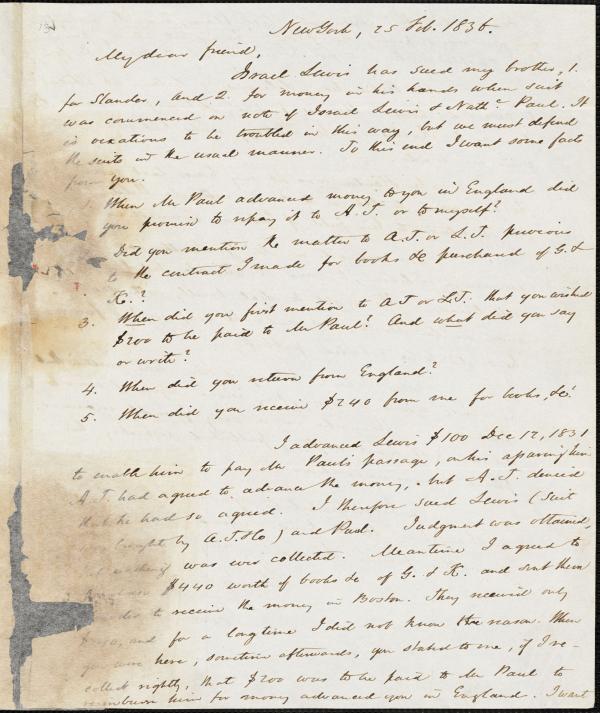 New York, 25 Feb. 1836.
My dear friend,
Israel Lewis has sued my brother, 1.
for Slander, and 2. for money in his hands when suit
was commenced on note of Israel Lewis & Nathl. Paul. It
is vexatious to be troubled in this way, but we must defend
the suits in the usual manner. To this end I want some facts
from you.
1. When Mr Paul advanced money to you in England did
you promise to repay it to A.T. or to myself?
Did you mention the matter to A.T. or L.T. previous
to the contract I made for books &c purchased of G. &
K.?
3. When did you first mention to A T or L.T. that you wished
$200 to be paid to Mr Paul? And what did you say
or write?
4. When did you return from England?
5. When did you receive $240 from me for books, &c?
I advanced Lewis $100 Dec 17, 1831
to enable him to pay Mr Paul's passage, on his assuring him
A.T. had agreed to advance the money, but A.T. denied
that he had so agreed. I therefore sued Lewis (Suit
brought by A.T. &Co) and Paul. Judgment was obtained,
was ever collected. Meantime I agreed to
$440 worth of books &c of G. & K. and sent them
to receive the money in Boston. They received only
and for a long time I did not know the reason. When
you were here, sometime afterwards, you stated to me, if I re-
collect rightly, that $200 was to be paid to Mr Paul to
reimburse him for money advanced you in England. I want